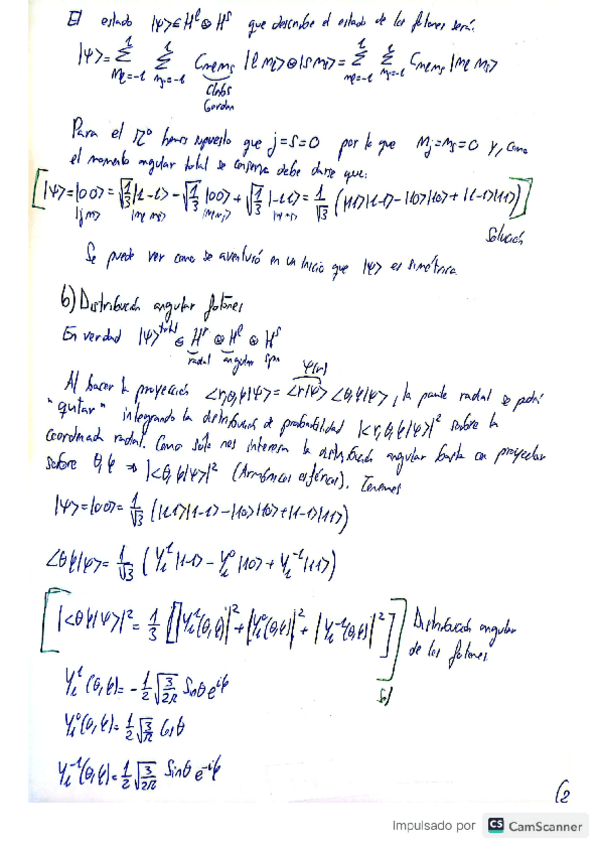 El estado |ψ>∈ Hˡ ⊗ Hˢ que describe el estado de los fotones será:
|ψ> = Σ Σ C_{mₗmₛ} |1 mₗ> ⊗ |1 mₛ> = Σ Σ C_{mₗmₛ} |mₗ mₛ>
mₗ=-1 mₛ=-1 mₗ=-1 mₛ=-1
Clebs
Gordan
Para el π⁰ hemos supuesto que j=s=0 por lo que Mj=Ms=0 y, como
el momento angular total se conserva debe darse que:
|ψ> = |00> = √(1/3) |1 -1> - √(1/3) |00> + √(1/3) |-1 1> = 1/√3 (|11>|1-1> - |10>|10> + |1-1>|11>)
|j m>
Solución
Se puede ver como se aventuró en un inicio que |ψ> es simétrica
b) Distribución angular fotones
En verdad |ψ>ᵗᵒᵗᵃˡ ∈ Hʳ ⊗ Hˡ ⊗ Hˢ
radal angular spin
ψ(r)
Al hacer la proyección <r,θ,φ|ψ> = <r|ψ> <θ,φ|ψ>, la parte radial se podrá
"quitar" integrando la distribución de probabilidad |<r,θ,φ|ψ>|² sobre la
coordenada radal. Como solo nos interesa la distribución angular basta con proyectar
sobre θ,φ ⇒ |<θ,φ|ψ>|² (Armónicos esféricos). Tenemos
|ψ> = |00> = 1/√3 (|11>|1-1> - |10>|10> + |1-1>|11>)
<θφ|ψ> = 1/√3 (Y₁¹ |1-1> - Y₁⁰ |10> + Y₁⁻¹ |11>)
|<θφ|ψ>|² = 1/3 [|Y₁¹(θ,φ)|² + |Y₁⁰(θ,φ)|² + |Y₁⁻¹(θ,φ)|²] Distribución angular
de los fotones
Sol
Y₁¹(θ,φ) = -1/2 √(3/2π) Sinθ e^{iφ}
Y₁⁰(θ,φ) = 1/2 √(3/π) Cosθ
Y₁⁻¹(θ,φ) = 1/2 √(3/2π) Sinθ e^{-iφ}
(2
Impulsado por CS CamScanner